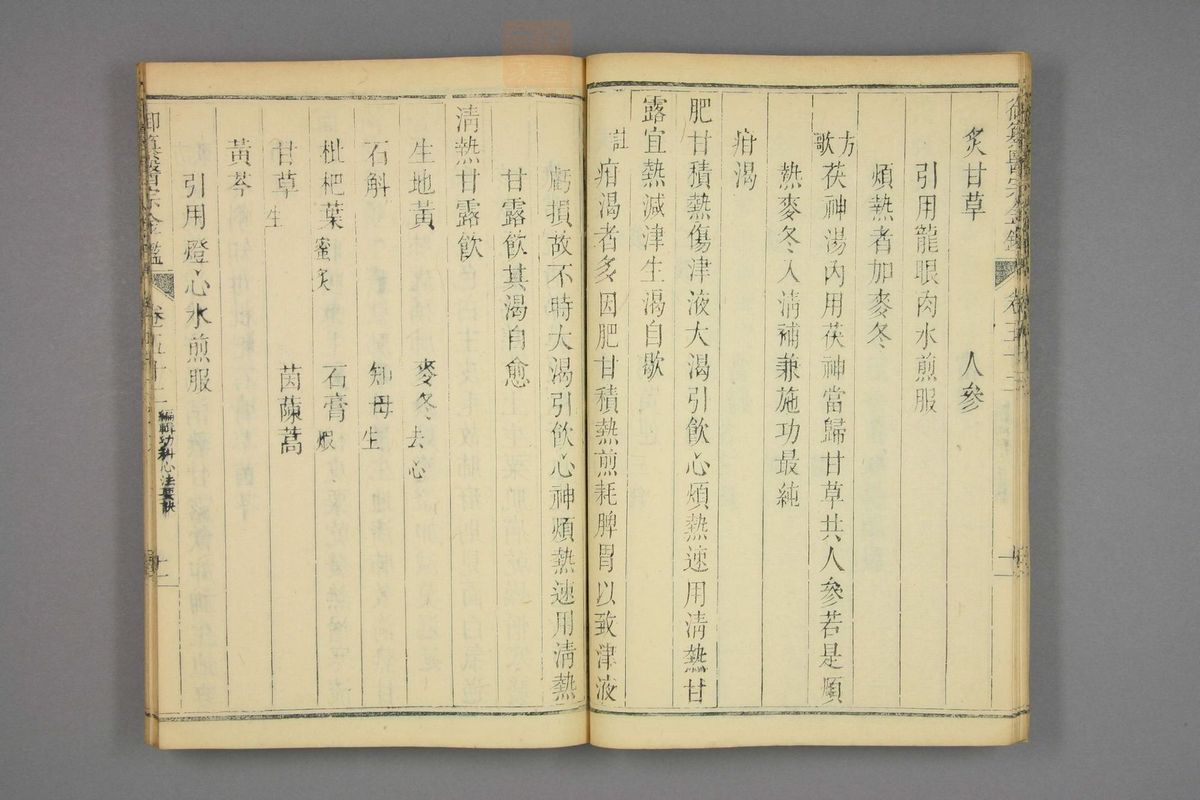 炙甘草 人參
引用龍眼肉水煎服
煩熱者加麥冬
方歌 茯神湯內用茯神當歸甘草共人參若是煩
熱麥冬入清補兼施功最純
疳渴
肥甘積熱傷津液大渴引飲心煩熱速用清熱甘
露宜熱減津生渴自歇
註 疳渴者多因肥甘積熱煎耗脾胃以致津液
虧損故不時大渴引飲心神煩熱速用清熱
甘露飲其渴自愈
清熱甘露飲
生地黃 麥冬去心
石斛 知母生
枇杷葉蜜炙 石膏煅
甘草生 茵蔯蒿
黃芩
引用燈心水煎服
御纂醫宗金鑑 卷五十二 編輯幼科心法要訣